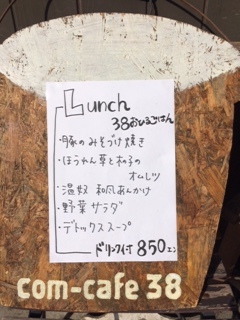 Lunch
38おひるごはん
・豚のみそづけ焼き
・ほうれん草と松子の
オムレツ
・温奴 和風あんかけ
・野菜サラダ
・デトックススープ
ドリンク付 850エン
com-cafe 38